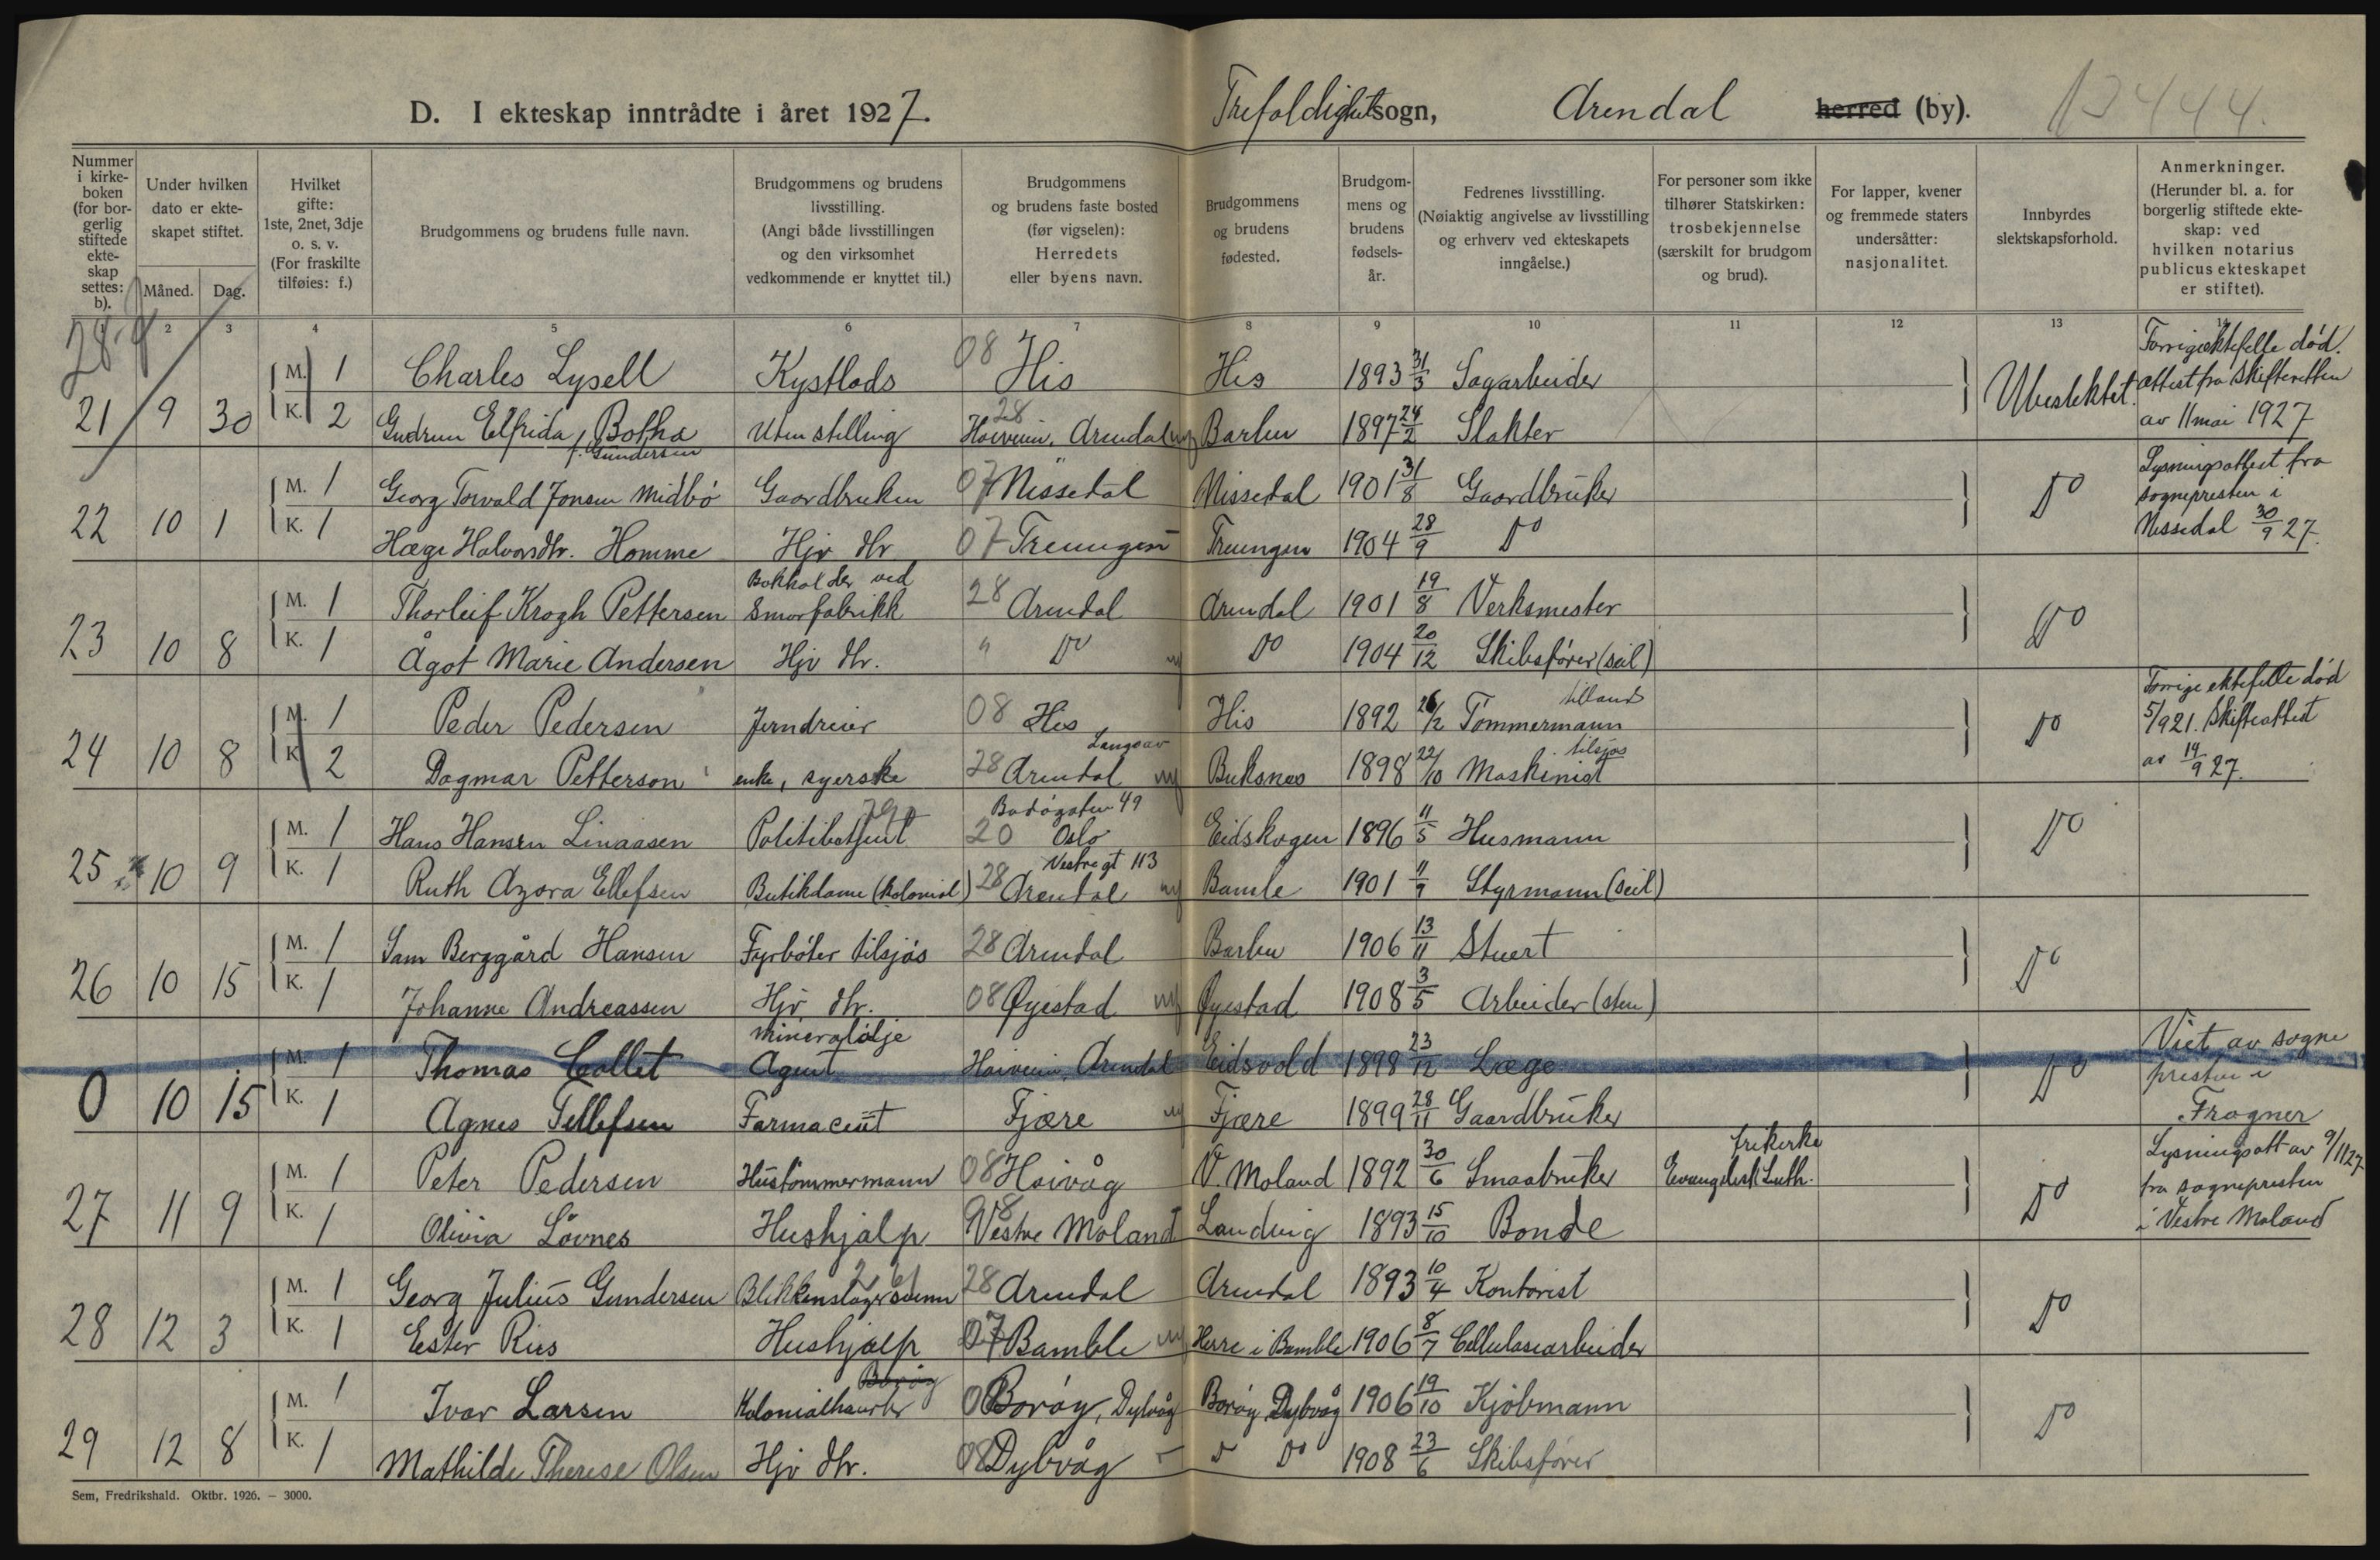 D. I ekteskap inntrådte i året 1927.
Trefoldighetsogn, Arendal herred (by).
13444.
Nummer i kirkeboken (for borgerlig stiftede ekteskap settes: b).
Under hvilken dato er ekteskapet stiftet.
Måned. Dag.
Hvilket gifte: 1ste, 2net, 3dje o. s. v. (For fraskilte tilføies: f.)
Brudgommens og brudens fulle navn.
Brudgommens og brudens livsstilling. (Angi både livsstillingen og den virksomhet vedkommende er knyttet til.)
Brudgommens og brudens faste bosted (før vigselen): Herredets eller byens navn.
Brudgommens og brudens fødested.
Brudgommens og brudens fødselsår.
Fedrenes livsstilling. (Nøiaktig angivelse av livsstilling og erhverv ved ekteskapets inngåelse.)
For personer som ikke tilhører Statskirken: trosbekjennelse (særskilt for brudgom og brud).
For lapper, kvener og fremmede staters undersåtter: nasjonalitet.
Innbyrdes slektskapsforhold.
Anmerkninger. (Herunder bl. a. for borgerlig stiftede ekteskap: ved hvilken notarius publicus ekteskapet er stiftet).
1 2 3 4 5 6 7 8 9 10 11 12 13 14
M. 1 Charles Lysell Kystlods 08 His His 1893 31/3 Sagarbeider Ubeslektet. Forrige ektefelle død. attest fra skifteretten av 11 mai 1927
21 9 30 K. 2 Gudrun Elfrida Botha f. Gundersen Uten stilling 28 Arendal Barbu 1897 24/2 Slakter
M. 1 Georg Torvald Jonsen Midbö Gaardbruker 07 Nissedal Nissedal 1901 31/8 Gaardbruker Do Lysningsattest fra sognepresten i Nissedal 30/9 27.
22 10 1 K. 1 Hæge Halvorsdtr. Homme Hjv dtr 07 Treungen Treungen 1904 28/9 Do
M. 1 Thorleif Krogh Pettersen Bokholder ved Smørfabrikk 28 Arendal Arendal 1901 19/8 Verksmester Do
23 10 8 K. 1 Ågot Marie Andersen Hjv dtr. " Do Do 1904 20/12 Skibsfører (seil)
M. 1 Peder Pedersen Jerndreier 08 His His 1892 26/2 Tømmermann tillands Do Forrige ektefelle død 5/9 21. Skifteattest av 14/9 27.
24 10 8 K. 2 Dagmar Petterson enke, syerske 28 Arendal Langsæ Buksnes 1898 22/10 Maskinist tilsjøs
M. 1 Hans Hansen Linaasen Politibetjent Bodøgaten 49 20 Oslo Eidskogen 1896 11/5 Husmann Do
25 10 9 K. 1 Ruth Azora Ellefsen Butikdame (kolonial) Vestregt 113 28 Arendal Bamle 1901 11/9 Styrmann (seil)
M. 1 Sam Berggård Hansen Fyrbøter tilsjøs 28 Arendal Barbu 1906 13/11 Stuert Do
26 10 15 K. 1 Johanne Andreassen Hjv dtr. 08 Øyestad Øyestad 1908 3/5 Arbeider (sten)
M. 1 Thomas Collet mineralolje Agent Arendal Eidsvold 1898 23/12 Læge Do Viet av sognepresten i Frogner
0 10 15 K. 1 Agnes Tellefsen Farmaceut Fjære Fjære 1899 28/11 Gaardbruker
M. 1 Peter Pedersen Hustømmermann 08 Høivåg V. Moland 1892 30/6 Smaabruker Evangelisk Luth. frikirke Do Lysningsatt av 9/11 27 fra sognepresten i Vestre Moland
27 11 9 K. 1 Olivia Lövnes Hushjælp Vestre Moland Landvig 1893 15/10 Bonde
M. 1 Georg Julius Gundersen Blikkenslagersvenn 28 Arendal Arendal 1893 10/4 Kontorist Do
28 12 3 K. 1 Ester Riis Hushjælp 07 Bamble Herre i Bamble 1906 8/7 Cellulosearbeider
M. 1 Ivar Larsen Kolonialhandler 08 Borøy, Dybvåg Borøy, Dybvåg 1906 19/10 Kjøbmann Do
29 12 8 K. 1 Mathilde Therese Olsen Hjv dtr. 08 Dybvåg Do 1908 23/6 Skibsfører
Sem, Fredrikshald. Oktbr. 1926. – 3000.